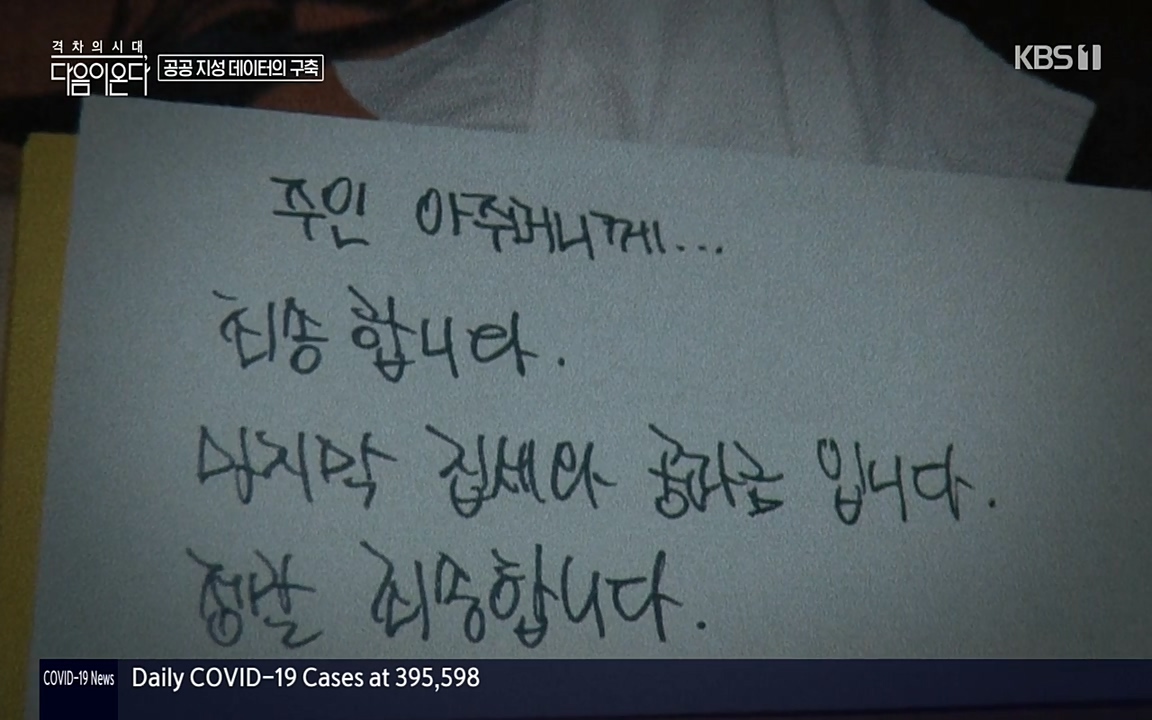 격차의시대
다음이온다
공공 지성 데이터의 구축
KBS1
주인 아주머니께...
죄송합니다.
마지막 집세와 공과금 입니다.
정말 죄송합니다.
COVID-19 News
Daily COVID-19 Cases at 395,598